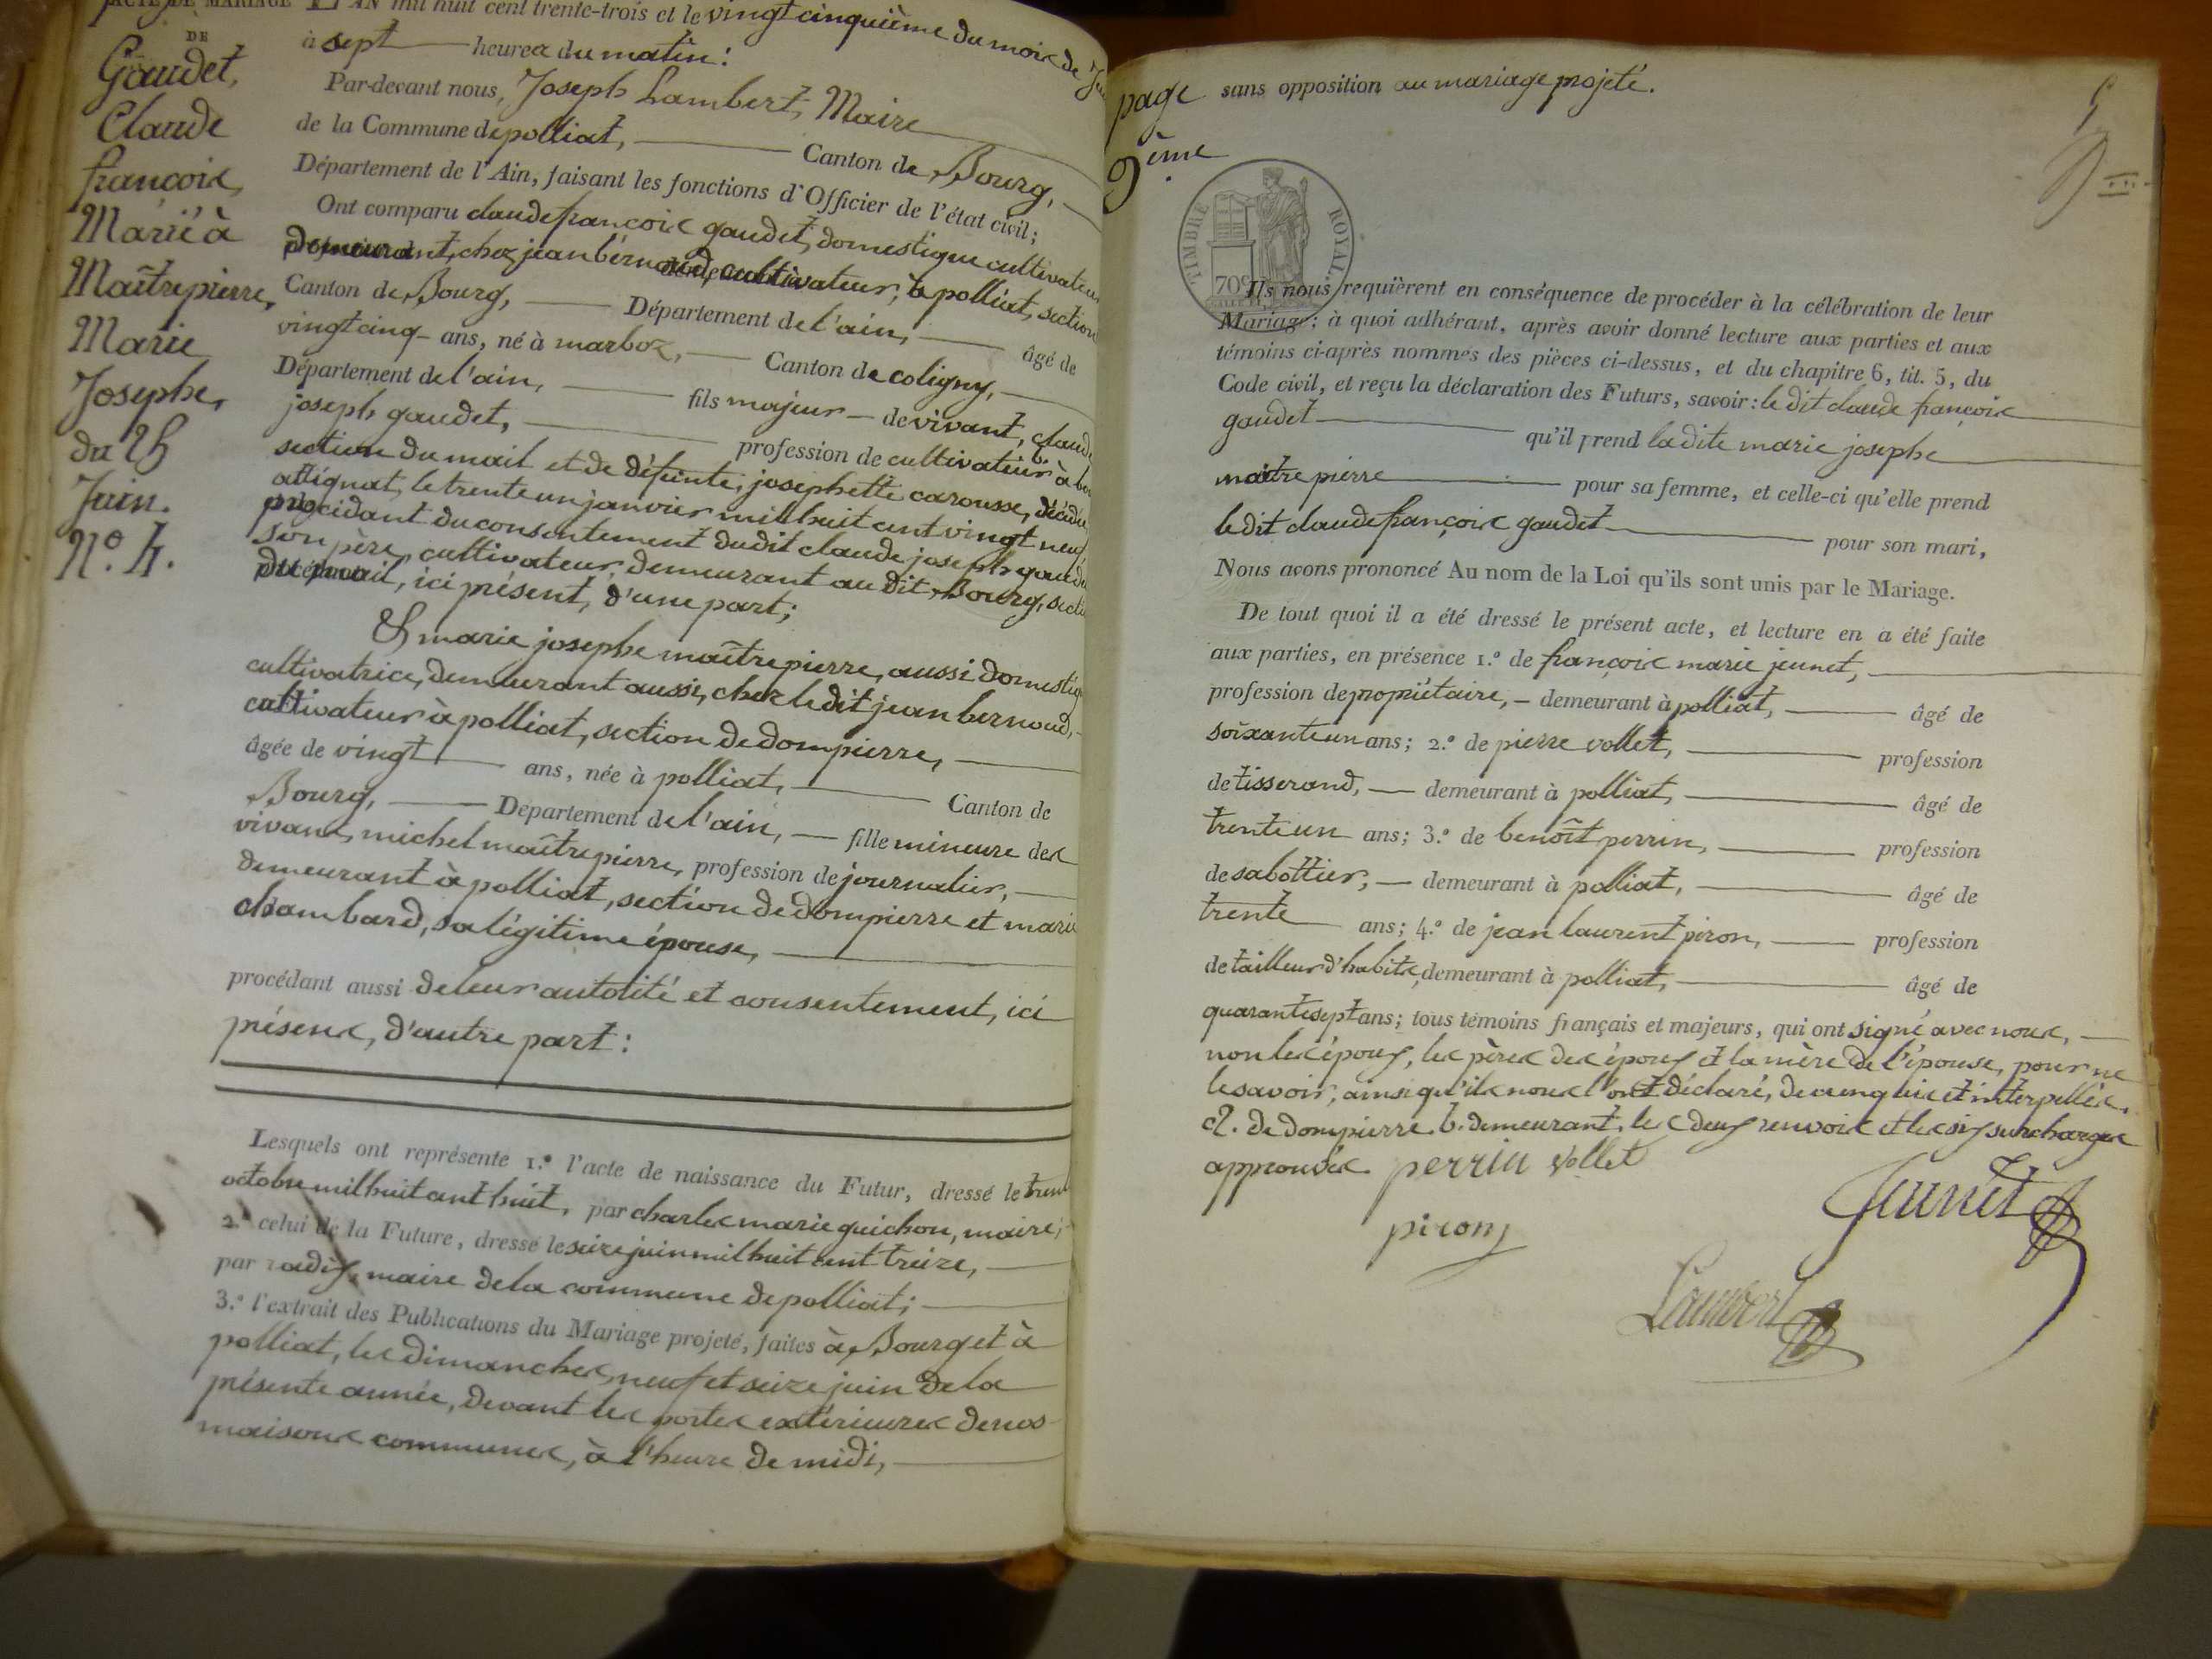 ACTE DE MARIAGE
DE
Gaudet,
Claude
françois,
Marié à
Maîtrepierre,
Marie
Josephe,
du 25
Juin.
N.º 4.
L'AN mil huit cent trente-trois et le vingt cinquième du mois de
à sept heures du matin :
Par-devant nous, Joseph Lambert, Maire
de la Commune de polliat, Canton de Bourg,
Département de l'Ain, faisant les fonctions d'Officier de l'état civil ;
Ont comparu claude françois gaudet, domestique cultivateur
demeurant, chez jean bernoud, cultivateur, à polliat, section
Canton de Bourg, Département de l'ain, âgé de
vingt cinq ans, né à marboz, Canton de coligny,
Département de l'ain, fils majeur de vivant, claude
joseph gaudet, profession de cultivateur à
section du mail et de défunte, josephette carousse, décédée
attignat, le trente un janvier mil huit cent vingt neuf
procédant du consentement dudit claude joseph gaudet
son père, cultivateur, demeurant au dit Bourg, section
du mail, ici présent, d'une part ;
Et marie josephe maîtrepierre, aussi domestique
cultivatrice, demeurant aussi, chez le dit jean bernoud,
cultivateur à polliat, section de dompierre,
âgée de vingt ans, née à polliat, Canton de
Bourg, Département de l'ain, fille mineure des
vivans, michel maîtrepierre, profession de journalier,
demeurant à polliat, section de dompierre et marie
chambard, sa légitime épouse,
procédant aussi de leur autorité et consentement, ici
présens, d'autre part :
Lesquels ont représenté 1.º l'acte de naissance du Futur, dressé le
octobre mil huit cent huit, par charles marie guichon, maire ;
2.º celui de la Future, dressé le seize juin mil huit cent treize,
par maire de la commune de polliat ;
3.º l'extrait des Publications du Mariage projeté, faites à Bourg et à
polliat, les dimanches, neuf et seize juin de la
présente année, devant les portes extérieures de nos
maisons communes, à l'heure de midi,
page
9ème
sans opposition au mariage projeté.
TIMBRE ROYAL
70c
Ils nous requièrent en conséquence de procéder à la célébration de leur
Mariage ; à quoi adhérant, après avoir donné lecture aux parties et aux
témoins ci-après nommés des pièces ci-dessus, et du chapitre 6, tit. 5, du
Code civil, et reçu la déclaration des Futurs, savoir : le dit claude françois
gaudet qu'il prend la dite marie josephe
maîtrepierre pour sa femme, et celle-ci qu'elle prend
le dit claude françois gaudet pour son mari,
Nous avons prononcé Au nom de la Loi qu'ils sont unis par le Mariage.
De tout quoi il a été dressé le présent acte, et lecture en a été faite
aux parties, en présence 1.º de françois marie jeunet,
profession de propriétaire, demeurant à polliat, âgé de
soixante un ans ; 2.º de pierre vollet, profession
de tisserand, demeurant à polliat, âgé de
trente un ans ; 3.º de benoît perrin, profession
de sabottier, demeurant à polliat, âgé de
trente ans ; 4.º de jean laurent piron, profession
de tailleur d'habits, demeurant à polliat, âgé de
quarante sept ans ; tous témoins français et majeurs, qui ont signé avec nous,
non les époux, les pères des époux et la mère de l'épouse, pour ne
le savoir, ainsi qu'ils nous l'ont déclaré, de ce enquis et interpellés.
a. de dompierre b. demeurant, les deux renvois et les six surcharges
approuvés. perrin vollet
Jeunet
piron
Lambert